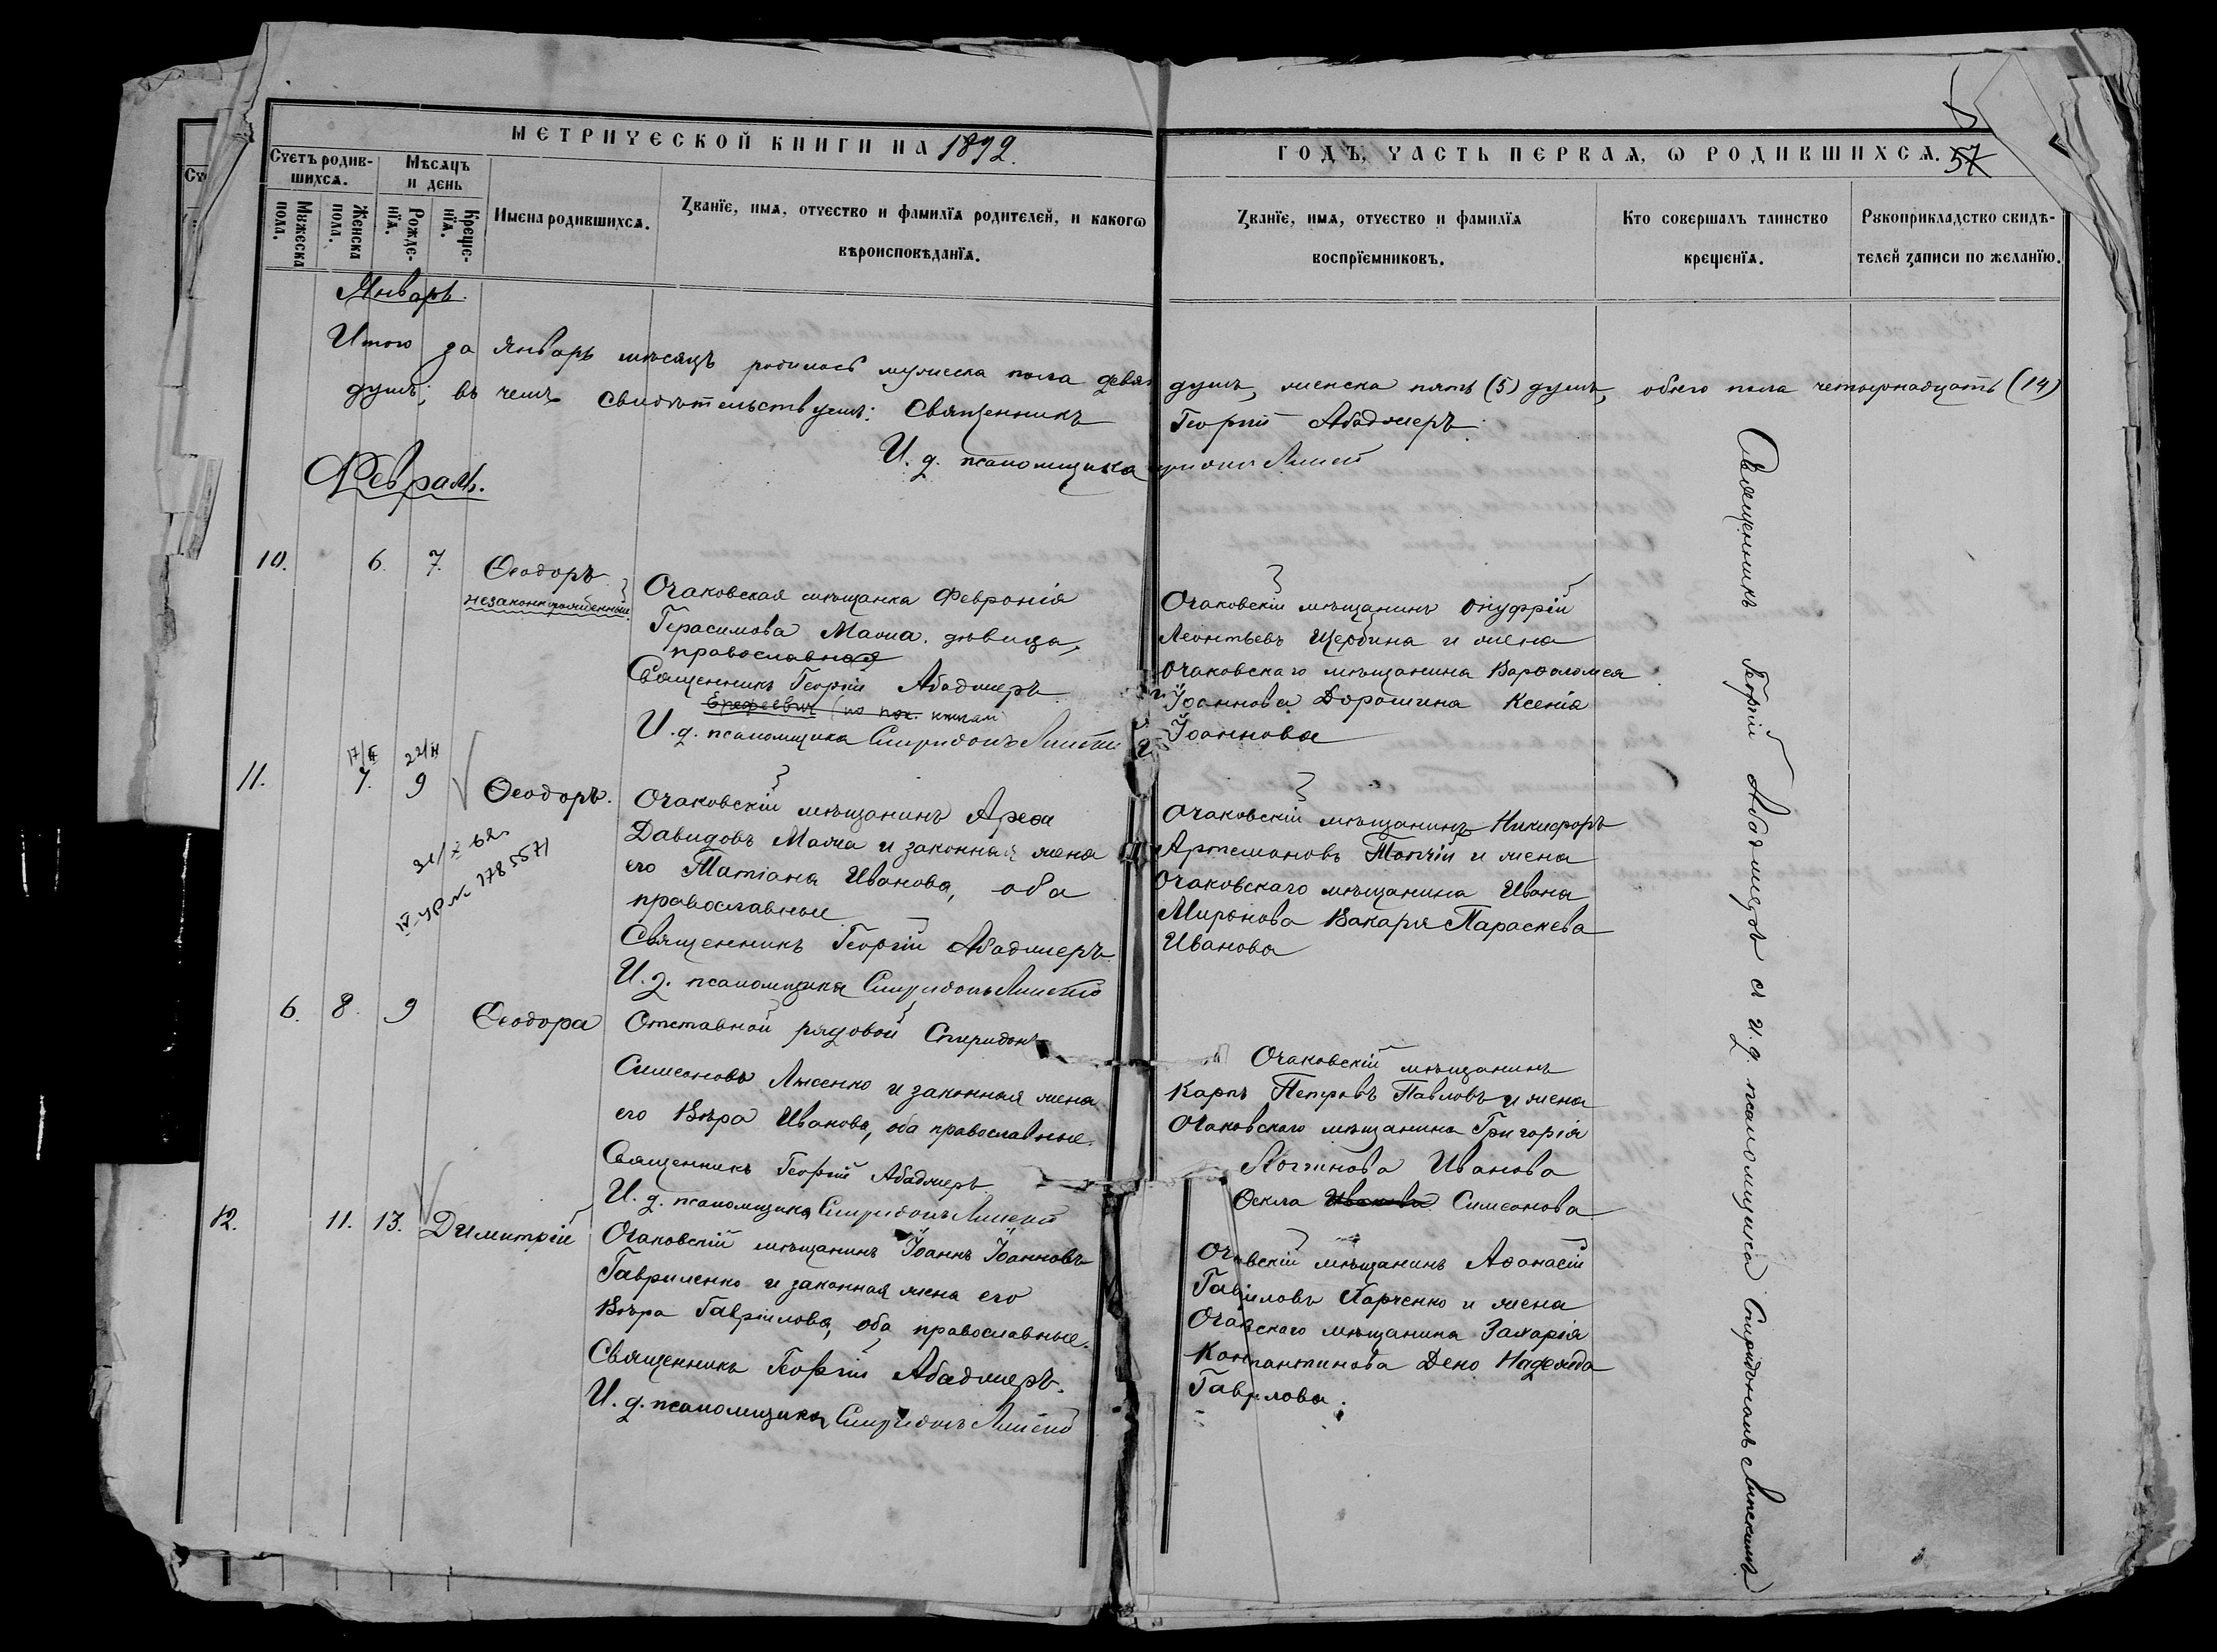 МЕТРИЧЕСКОЙ КНИГИ НА 1892.
ГОДЪ, ЧАСТЬ ПЕРВАѦ, Ѡ РОДИВШИХСѦ. 57
Счетъ родив-
шихсѧ.
Мѣсяцъ
и день
Мужеска
пола.
Женска
пола.
Рожде-
нїѧ.
Креще-
нїѧ.
Имена родившихсѧ.
Званїе, имѧ, отчество и фамилїѧ родителей, и какогѡ
вѣроисповѣданїѧ.
Званїе, имѧ, отчество и фамилїѧ
воспрїемниковъ.
Кто совершалъ таинство
крещенїѧ.
Рукоприкладство свидѣ-
телей записи по желанїю.
Январь.
Итого за Январь мѣсяцъ родилось мужеска пола девя душъ, женска пять (5) душъ, обоего пола четырнадцать (14)
душъ; въ чемъ свидѣтельствуемъ: Священникъ Георгій Абаджіеръ.
И. д. псаломщика
Февраль.
10. 6. 7. Ѳеодоръ
незаконнорожденный.
Очаковская мѣщанка Февронія
Герасимова Мазна. дѣвица,
православная
Священникъ Георгій Абаджіеръ
И. д. псаломщика Спиридонъ
Очаковскій мѣщанинъ Онуфрій
Леонтьевъ Щербина и жена
Очаковскаго мѣщанина Варѳоломея
Іоаннова Дорошина Ксенія
Іоаннова
17/II 22/II
11. 7. 9 Ѳеодоръ.
Очаковскій мѣщанинъ Ареѳа
Давидовъ Мазна и законная жена
его Татіана Иванова, оба
православные
Священникъ Георгій Абаджіеръ.
И. д. псаломщика Спиридонъ
Очаковскій мѣщанинъ Никифоръ
Артемоновъ Топчій и жена
Очаковскаго мѣщанина Ивана
Миронова Вакаря Параскева
Иванова
6. 8. 9 Ѳеодора
Отставной рядовой Спиридонъ
Симеоновъ Лысенко и законная жена
его Вѣра Иванова, оба православные.
Священникъ Георгій Абаджіеръ
И. д. псаломщика Спиридонъ
Очаковскій мѣщанинъ
Карпъ Петровъ Павловъ и жена
Очаковскаго мѣщанина Григорія
Логинова Иванова
Ѳекла Иванова Симеонова
12. 11. 13. Димитрій
Очаковскій мѣщанинъ Іоаннъ Іоанновъ
Гавриленко и законная жена его
Вѣра Гавріилова, оба православные.
Священникъ Георгій Абаджіеръ.
И. д. псаломщика Спиридонъ
мѣщанинъ Аѳанасій
Харченко и жена
мѣщанина Захарія
Дено Надежда
Священникъ Георгій Абаджіеръ съ и. д. псаломщика Спиридономъ Липскимъ